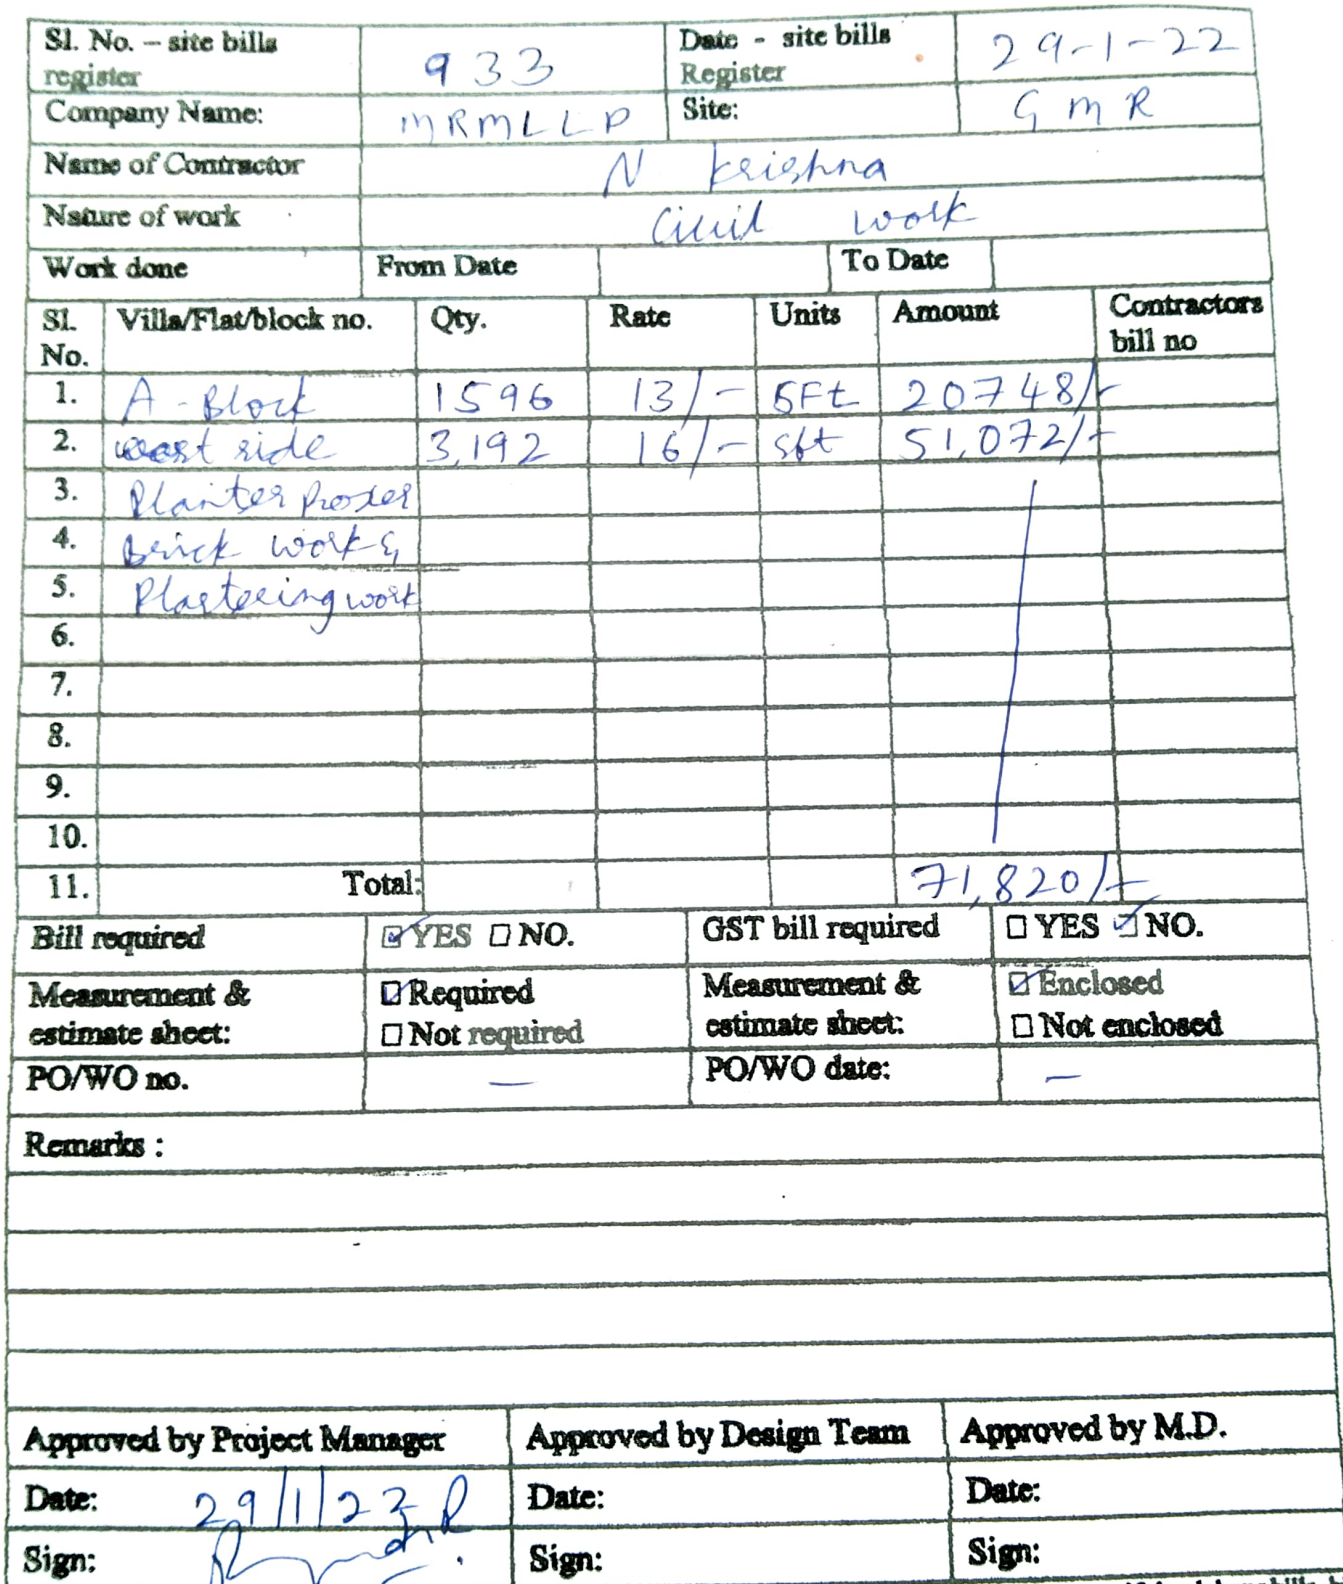 Sl. No. – site bills register 933 Date - site bills Register 29-1-22
Company Name: MRMLLP Site: GMR
Name of Contractor N Krishna
Nature of work Civil work
Work done From Date To Date
Sl. No. Villa/Flat/block no. Qty. Rate Units Amount Contractors bill no
1. A-Block 1596 13/- SFt 20748/-
2. west side 3,192 16/- sft 51,072/-
3. Planter
4. Brick work &
5. Plastering work
6.
7.
8.
9.
10.
11. Total: 71,820/-
Bill required ☑ YES ☐ NO. GST bill required ☐ YES ☑ NO.
Measurement & estimate sheet: ☑ Required ☐ Not required Measurement & estimate sheet: ☑ Enclosed ☐ Not enclosed
PO/WO no. — PO/WO date: —
Remarks :
Approved by Project Manager Approved by Design Team Approved by M.D.
Date: 29/1/22 Date: Date:
Sign: Sign: Sign: